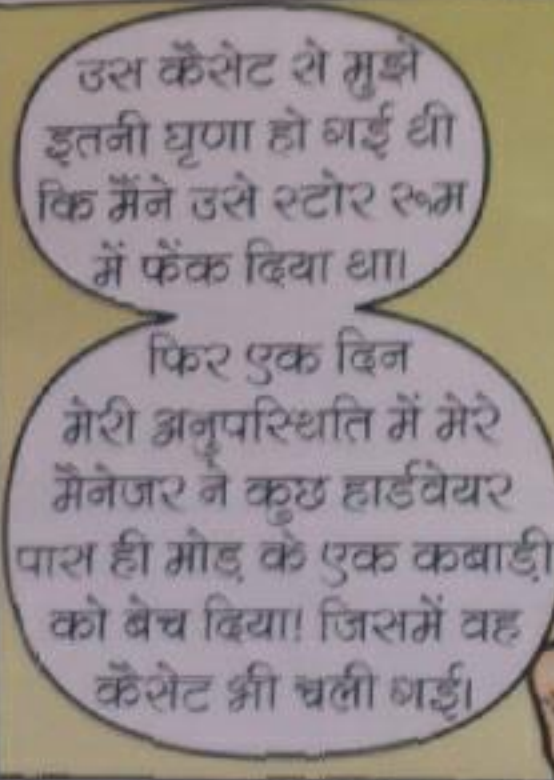 उस कैसेट से मुझे
इतनी घृणा हो गई थी
कि मैंने उसे स्टोर रूम
में फेंक दिया था।
फिर एक दिन
मेरी अनुपस्थिति में मेरे
मैनेजर ने कुछ हार्डवेयर
पास ही मोड़ के एक कबाड़ी
को बेच दिया! जिसमें वह
कैसेट भी चली गई।